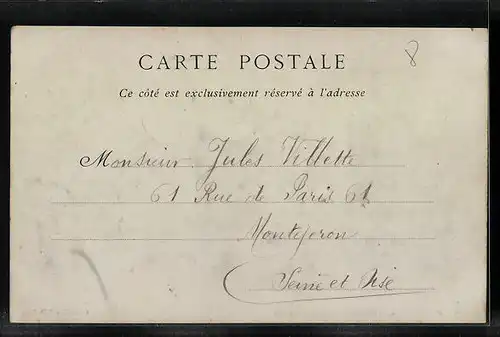 8
CARTE POSTALE
Ce côté est exclusivement réservé à l'adresse
Monsieur Jules Villette
61 Rue de Paris 61
Montgeron
Seine et Oise